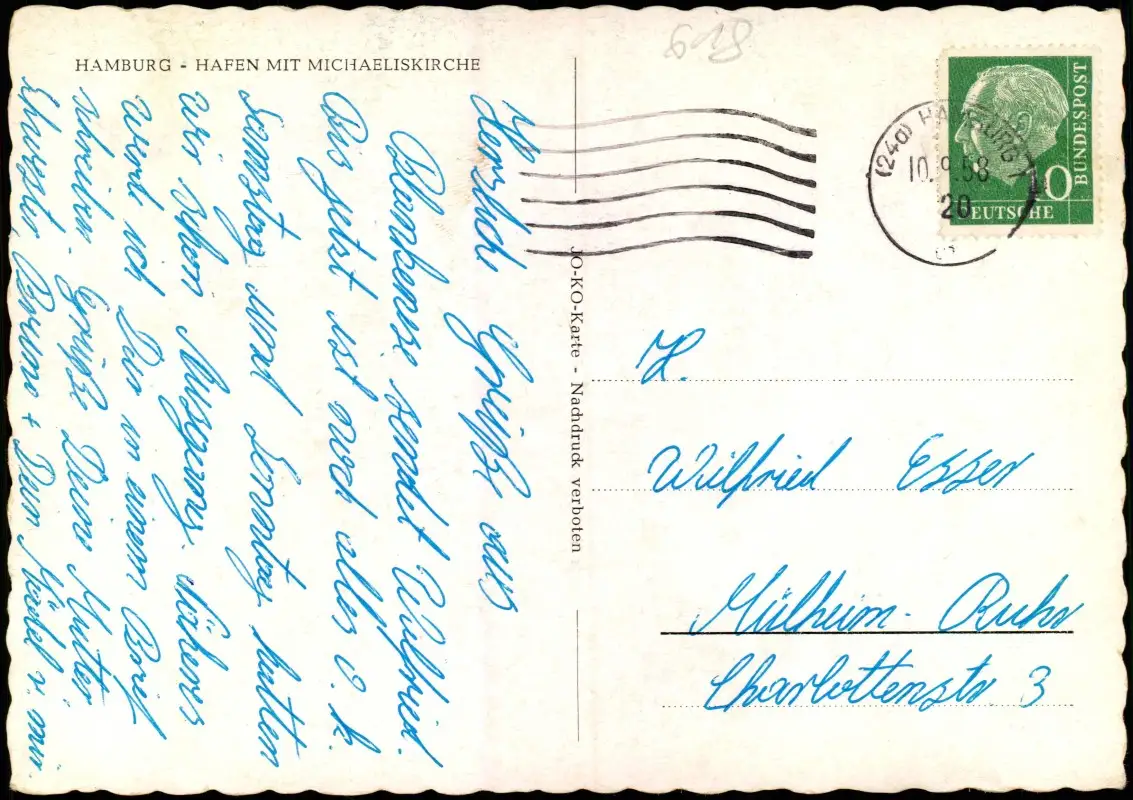 HAMBURG - HAFEN MIT MICHAELISKIRCHE
618
DEUTSCHE
BUNDESPOST
10
(24a) HAMBURG 1
10.9.58
20
JO-KO-Karte - Nachdruck verboten
Herzliche Grüße aus
Blankenese sendet Wilfried.
Bis jetzt ist noch alles o.k.
Samstag und Sonntag hatten
wir schon Ausgang. Näheres
werde ich Dir in einem Brief
schreiben. Grüße Deine Mutter
Schwester, Bruno + Dein Mädel v. mir.
H.
Wilfried Esser
Mülheim-Ruhr
Charlottenstr. 3